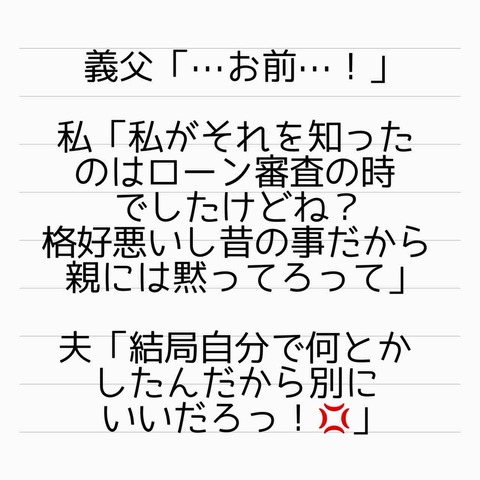 義父「…お前…！」
私「私がそれを知った
のはローン審査の時
でしたけどね？
格好悪いし昔の事だから
親には黙ってろって」
夫「結局自分で何とか
したんだから別に
いいだろっ！💢」